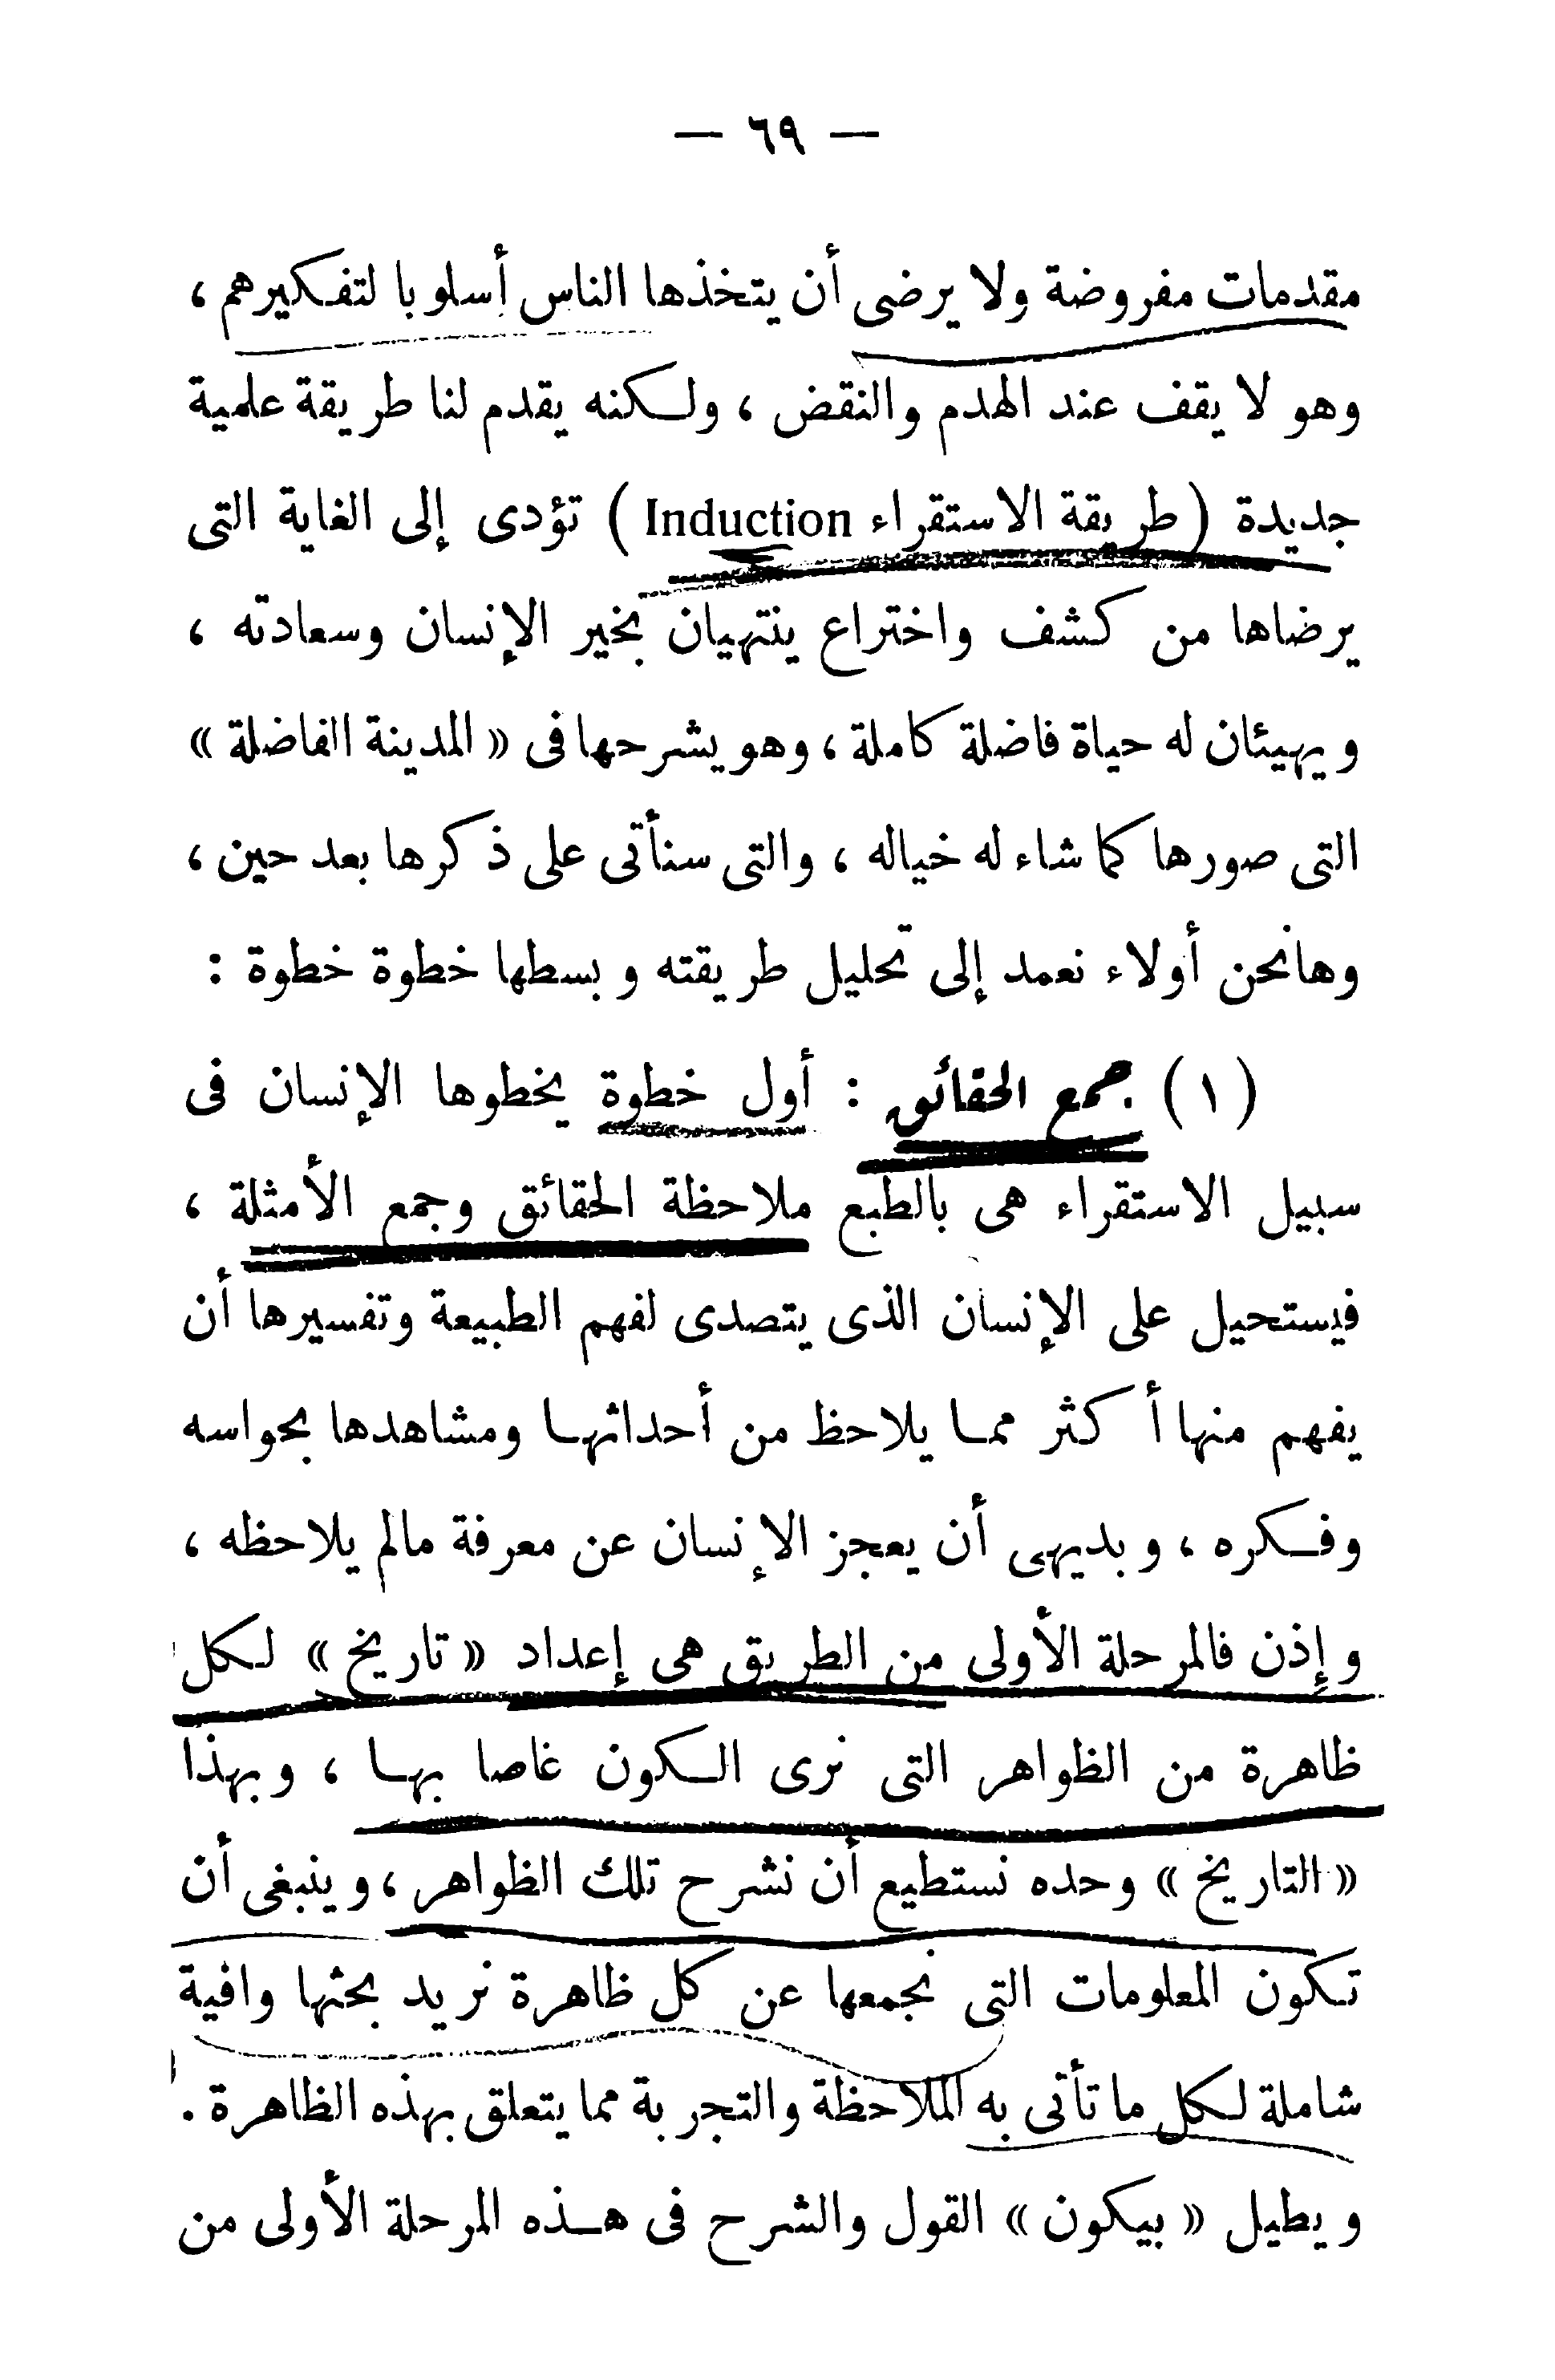 — ٦٩ —
مقدمات مفروضة ولا يرضى أن يتخذها الناس أسلوبا لتفكيرهم ،
وهو لا يقف عند الهدم والنقض ، ولكنه يقدم لنا طريقة علمية
جديدة ( طريقة الاستقراء Induction ) تؤدى إلى الغاية التى
يرضاها من كشف واختراع ينتهيان بخير الإنسان وسعادته ،
ويهيئان له حياة فاضلة كاملة ، وهو يشرحها فى « المدينة الفاضلة »
التى صورها كما شاء له خياله ، والتى سنأتى على ذكرها بعد حين ،
وهانحن أولاء نعمد إلى تحليل طريقته وبسطها خطوة خطوة :
( ١ ) جمع الحقائق : أول خطوة يخطوها الإنسان فى
سبيل الاستقراء هى بالطبع ملاحظة الحقائق وجمع الأمثلة ،
فيستحيل على الإنسان الذى يتصدى لفهم الطبيعة وتفسيرها أن
يفهم منها أكثر مما يلاحظ من أحداثها ومشاهدها بحواسه
وفكره ، وبديهى أن يعجز الإنسان عن معرفة مالم يلاحظه ،
وإذن فالمرحلة الأولى من الطريق هى إعداد « تاريخ » لكل
ظاهرة من الظواهر التى نرى الكون غاصا بها ، وبهذا
« التاريخ » وحده نستطيع أن نشرح تلك الظواهر ، وينبغى أن
تكون المعلومات التى نجمعها عن كل ظاهرة نريد بحثها وافية
شاملة لكل ما تأتى به الملاحظة والتجربة مما يتعلق بهذه الظاهرة .
ويطيل « بيكون » القول والشرح فى هذه المرحلة الأولى من